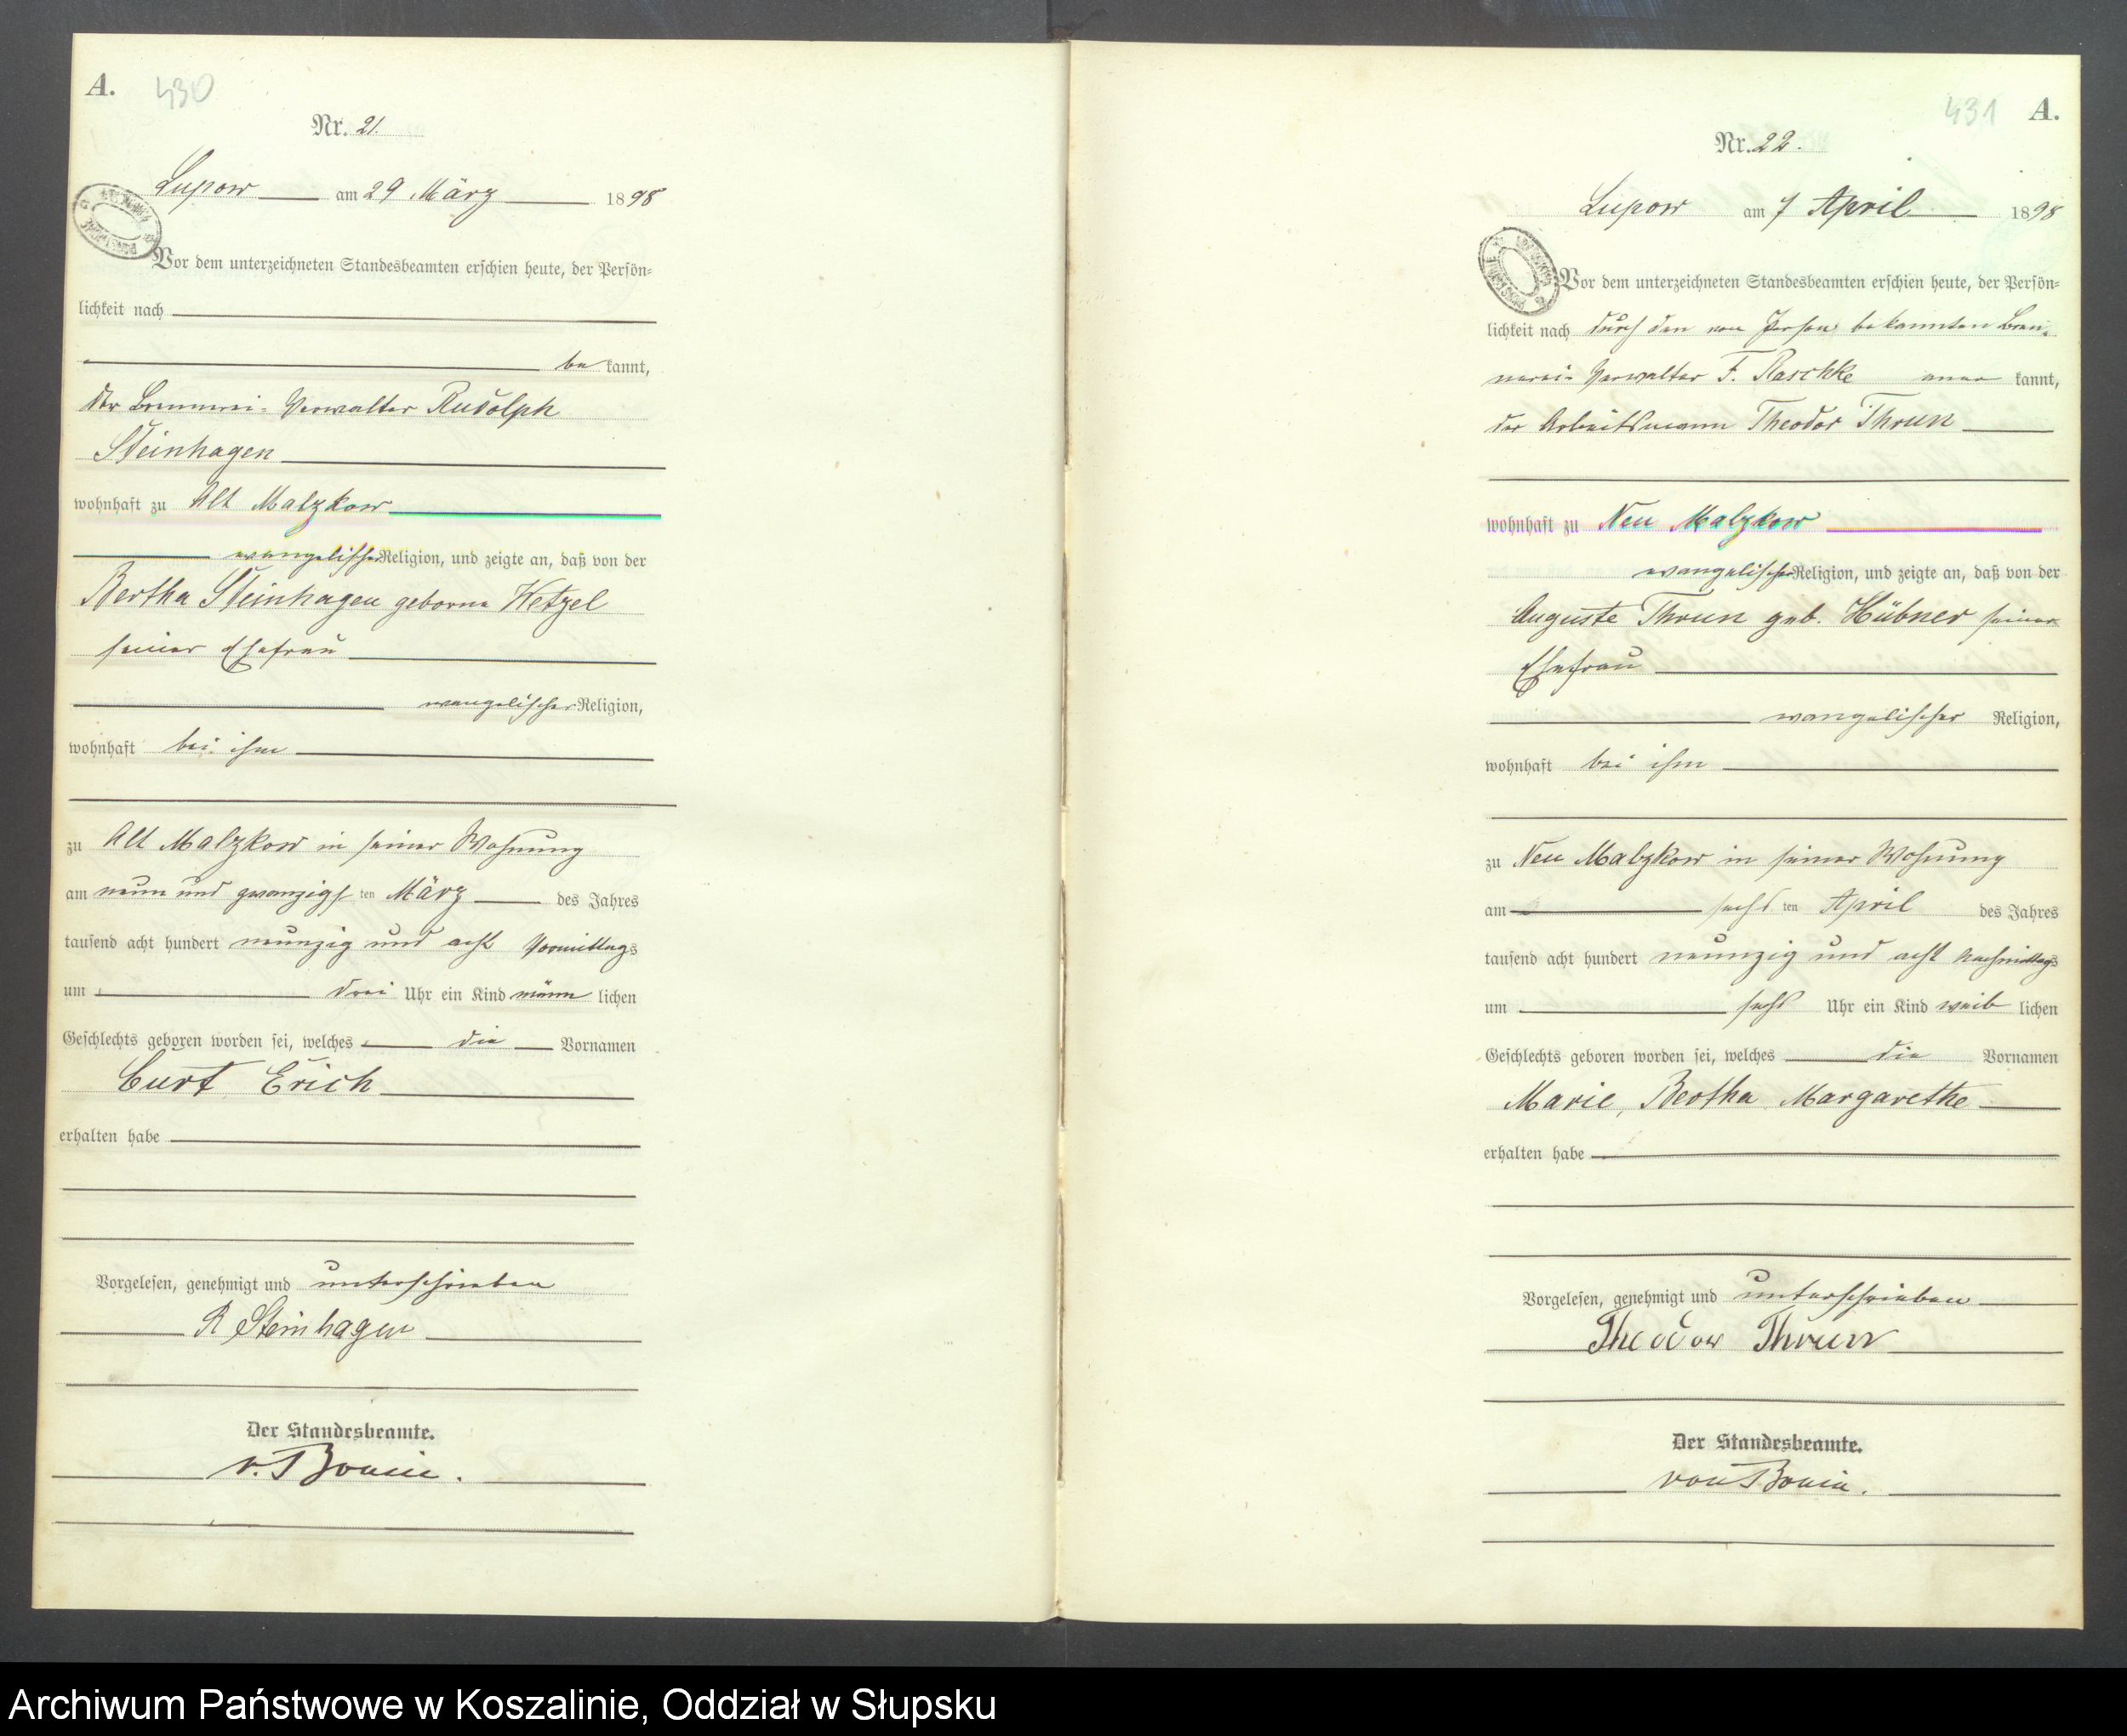 A. 430
Nr. 21.
Lupow am 29 März 1898
Vor dem unterzeichneten Standesbeamten erschien heute, der Persön=
lichkeit nach
be kannt,
der Brennerei-Verwalter Rudolph
Steinhagen
wohnhaft zu Alt Malzkow
evangelischer Religion, und zeigte an, daß von der
Bertha Steinhagen geborne Wetzel
seiner Ehefrau
evangelischer Religion,
wohnhaft bei ihm
zu Alt Malzkow in seiner Wohnung
am neun und zwanzigs ten März des Jahres
tausend acht hundert neunzig und acht Vormittags
um drei Uhr ein Kind männ lichen
Geschlechts geboren worden sei, welches die Vornamen
Curt Erich
erhalten habe
Vorgelesen, genehmigt und unterschrieben
R Steinhagen
Der Standesbeamte.
v. Bonin.
431 A.
Nr. 22.
Lupow am 7 April 1898
Vor dem unterzeichneten Standesbeamten erschien heute, der Persön=
lichkeit nach durch den von Person bekannten Bren-
nerei-Verwalter F. Raschke aner kannt,
der Arbeitsmann Theodor Thrun
wohnhaft zu Neu Malzkow
evangelischer Religion, und zeigte an, daß von der
Auguste Thrun geb. Hübner seiner
Ehefrau
evangelischer Religion,
wohnhaft bei ihm
zu Neu Malzkow in seiner Wohnung
am sechs ten April des Jahres
tausend acht hundert neunzig und acht Nachmittags
um sechs Uhr ein Kind weib lichen
Geschlechts geboren worden sei, welches die Vornamen
Marie, Bertha Margarethe
erhalten habe
Vorgelesen, genehmigt und unterschrieben
Theodor Thrun
Der Standesbeamte.
von Bonin.
Archiwum Państwowe w Koszalinie, Oddział w Słupsku